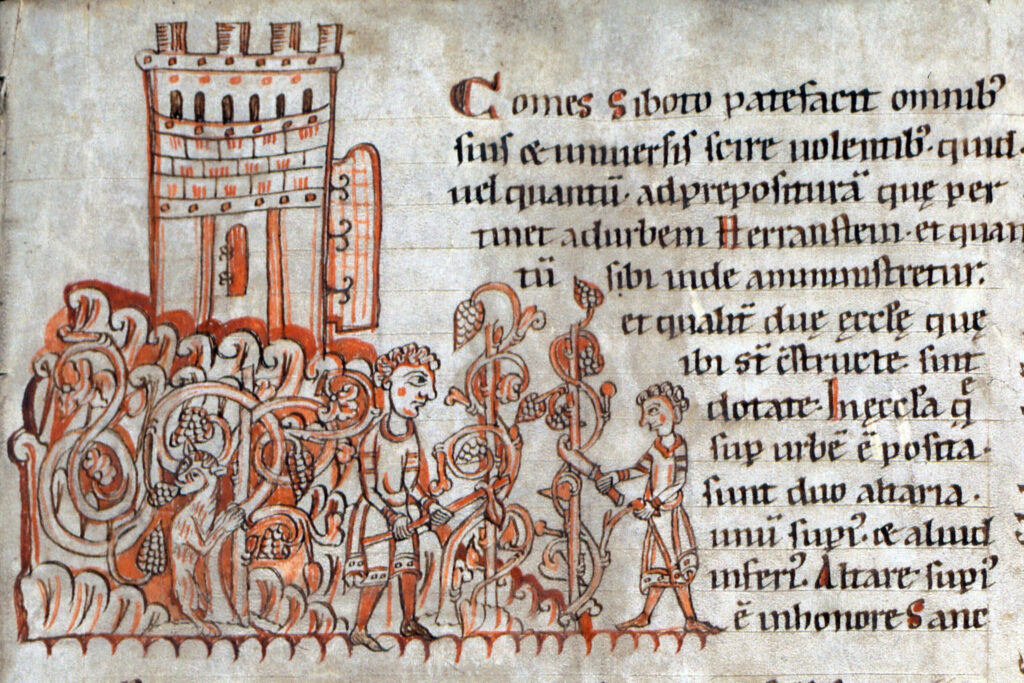 Comes Siboto patefacit omnib᾽
suis & universis scire volentib᾽· quid·
vel quantū· ad prepositurā quę per
tinet ad urbem Herranstein· et quan
tū sibi inde amministretur·
et qualit̄ due ęccłę que
ibi st̄ c̄structe· sunt
dotate· In ęccła q̄
sup urbē ē posita·
sunt duo altaria·
unū supi᾽· & aliud
inferi᾽· Altare· supi᾽
ē in honore Sanc